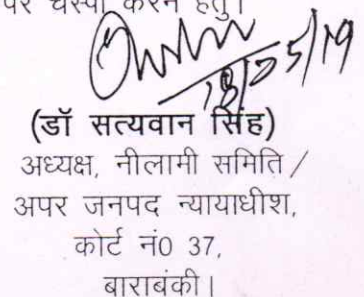 पर चस्पा करने हेतु।
18/05/19
(डॉ सत्यवान सिंह)
अध्यक्ष, नीलामी समिति /
अपर जनपद न्यायाधीश,
कोर्ट नं0 37,
बाराबंकी।